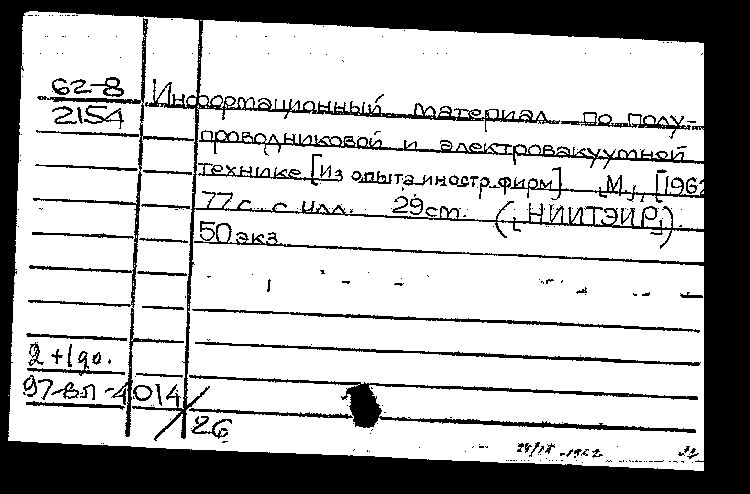 62-8
2154
Информационный материал по полу-
проводниковой и электровакуумной
технике [из опыта иностр. фирм] М., [1962
77 с. с илл. 29 см. (НИИТЭИР).
50 экз.
2 +1 до.
97-вл-4014
26